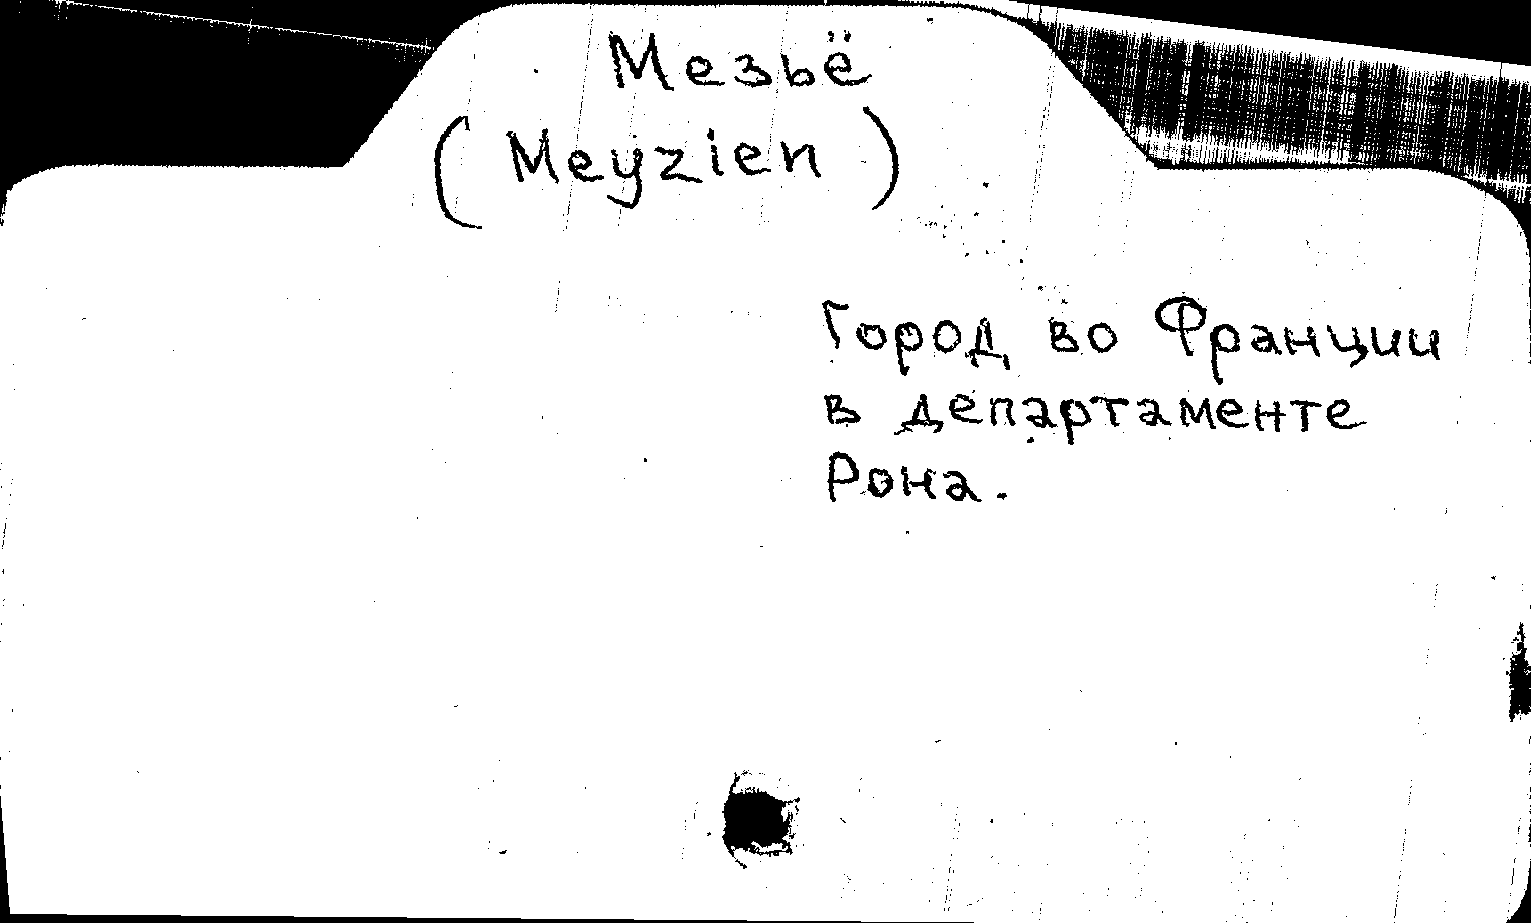 Мезьё
(Meyzien)
Город во Франции
в департаменте
Рона.